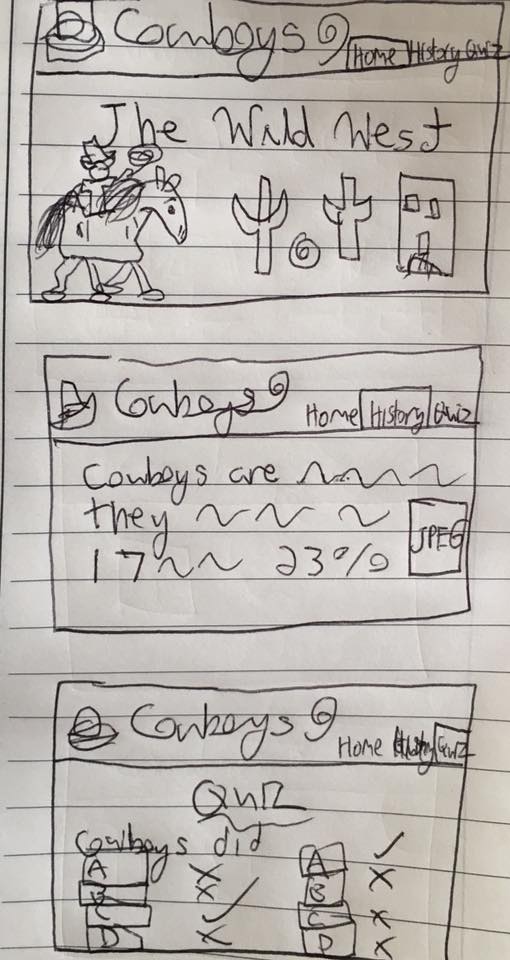 Cowboys
Home History Quiz
The Wild West
Cowboys
Home History Quiz
Cowboys are
they
17 23%
JPEG
Cowboys
Home History Quiz
Quiz
Cowboys did
A A
B B
C C
D D